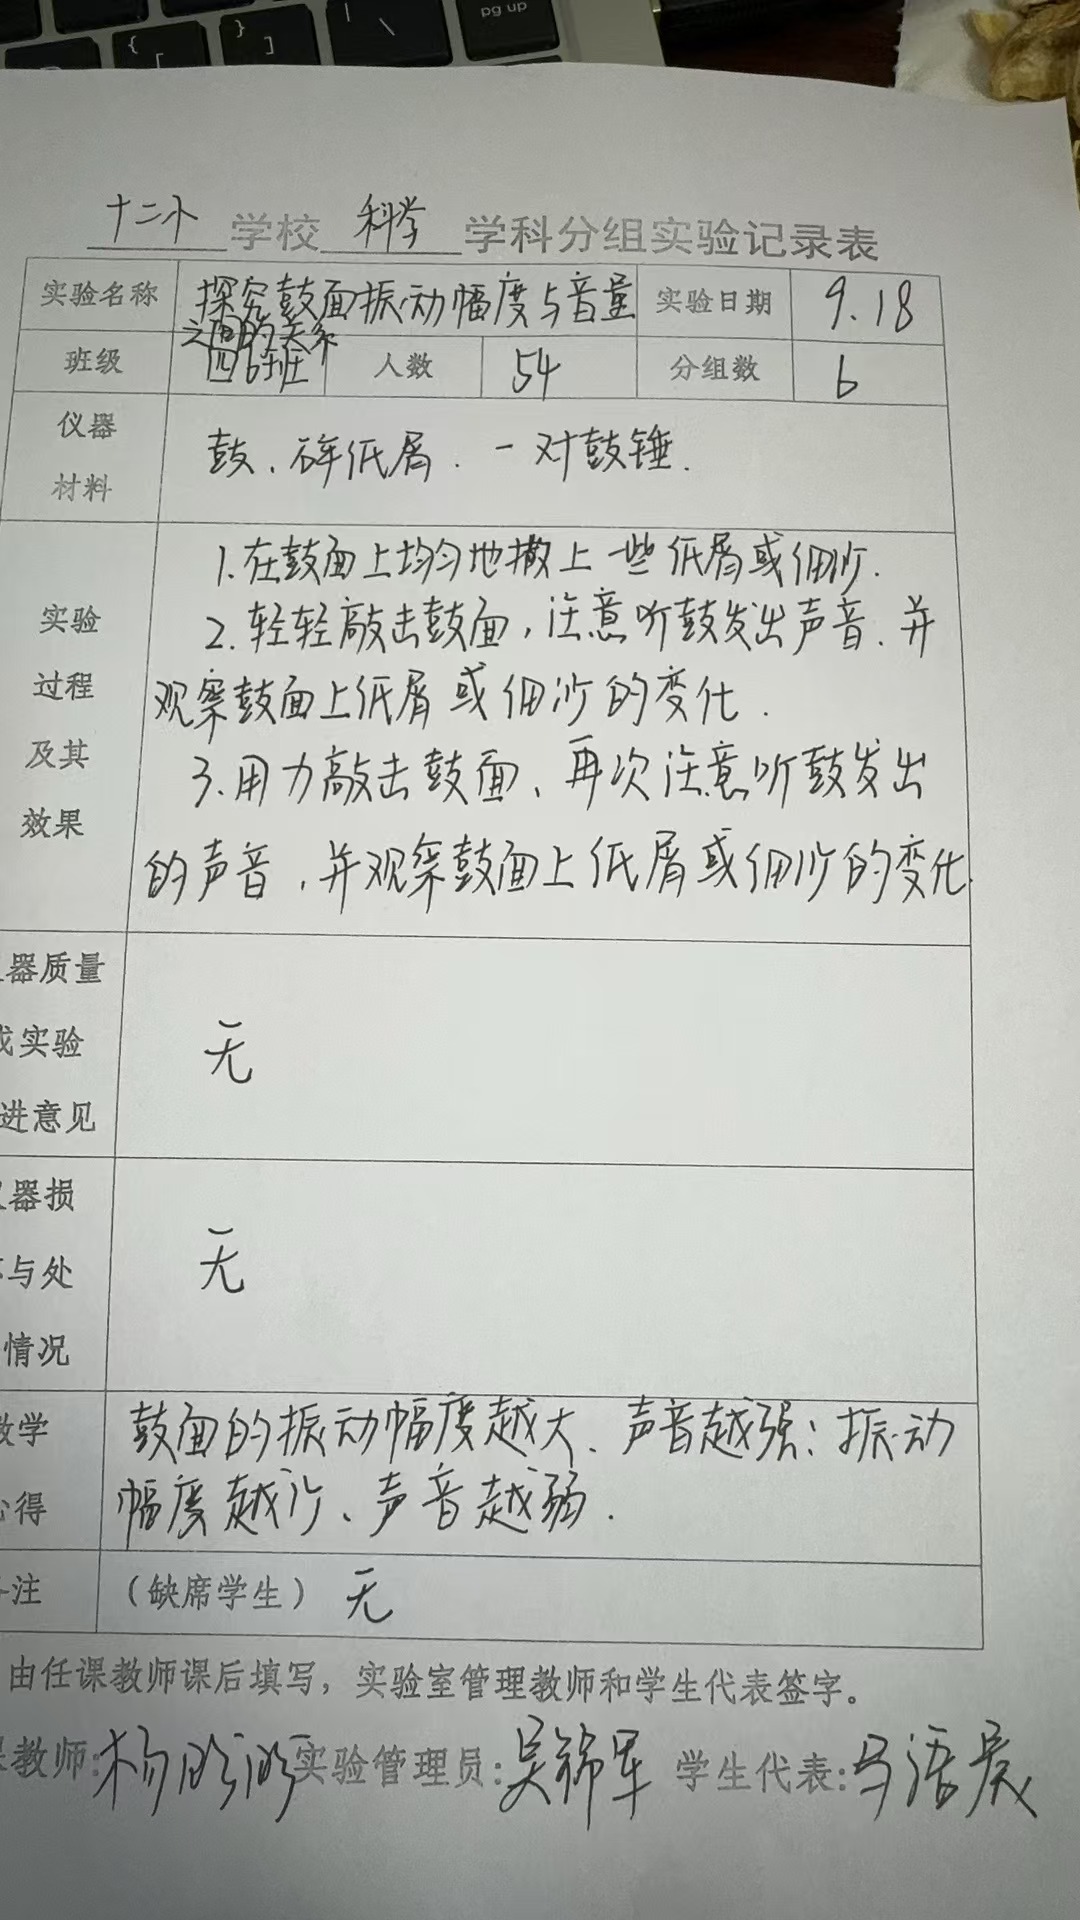 { [
} ]
| \
pg up
十二小 学校 科学 学科分组实验记录表
实验名称 探究鼓面振动幅度与音量之间的关系 实验日期 9.18
班级 四6班 人数 54 分组数 6
仪器
材料
鼓、碎纸屑.一对鼓锤.
实验
过程
及其
效果
1.在鼓面上均匀地撒上一些纸屑或细沙.
2.轻轻敲击鼓面,注意听鼓发出声音.并
观察鼓面上纸屑或细沙的变化.
3.用力敲击鼓面、再次注意听鼓发出
的声音,并观察鼓面上纸屑或细沙的变化.
器质量
或实验
进意见
无
器损
与处
情况
无
教学
心得
鼓面的振动幅度越大、声音越强;振动
幅度越小、声音越弱.
注 (缺席学生) 无
由任课教师课后填写,实验室管理教师和学生代表签字。
教师: 杨 实验管理员: 吴 军 学生代表: 马语